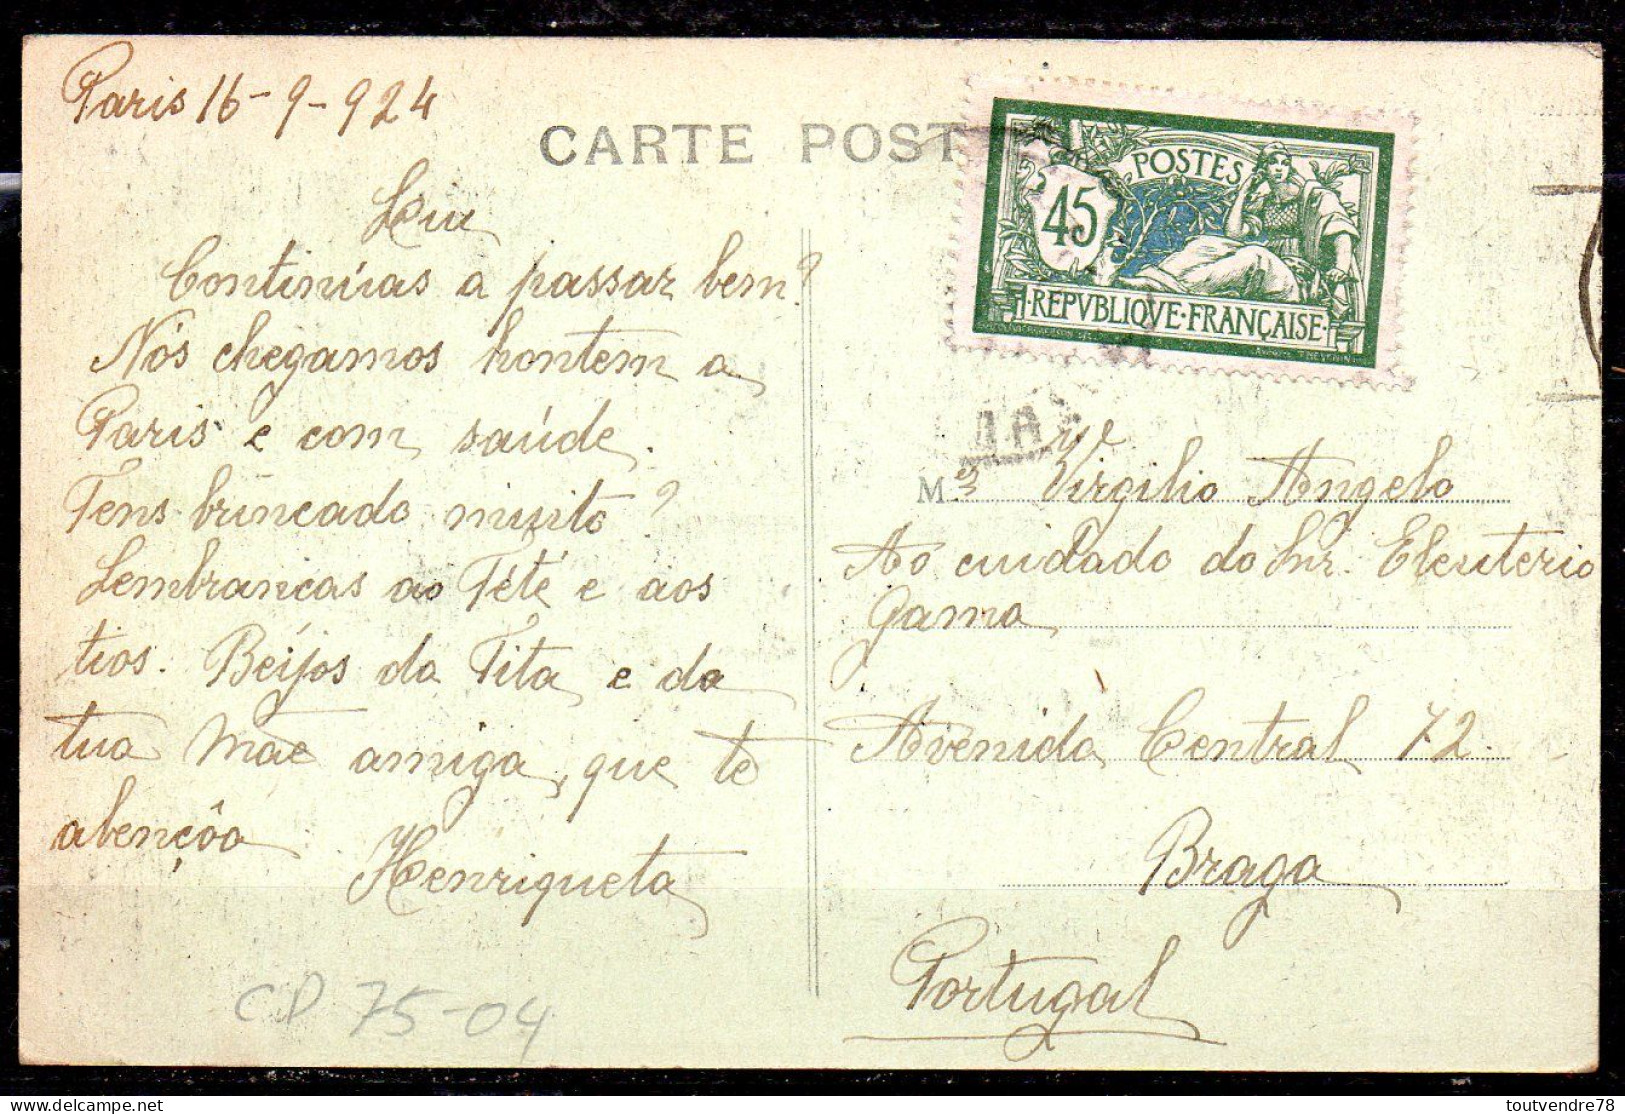 Paris 16-9-924
CARTE POST
Continúas a passar bem?
Nós chegamos hontem a
Paris e com saúde.
Tens brincado muito?
Lembranças ao Tété e aos
tios. Beijos da Tita e da
tua Mãe amiga, que te
abençôa
Henriqueta
CP 75-04
POSTES
45
REPVBLIQVE·FRANÇAISE
M
Virgilio Angelo
Ao cuidado do Snr. Eleuterio
Gama
Avenida Central 72
Braga
Portugal
toutvendre78